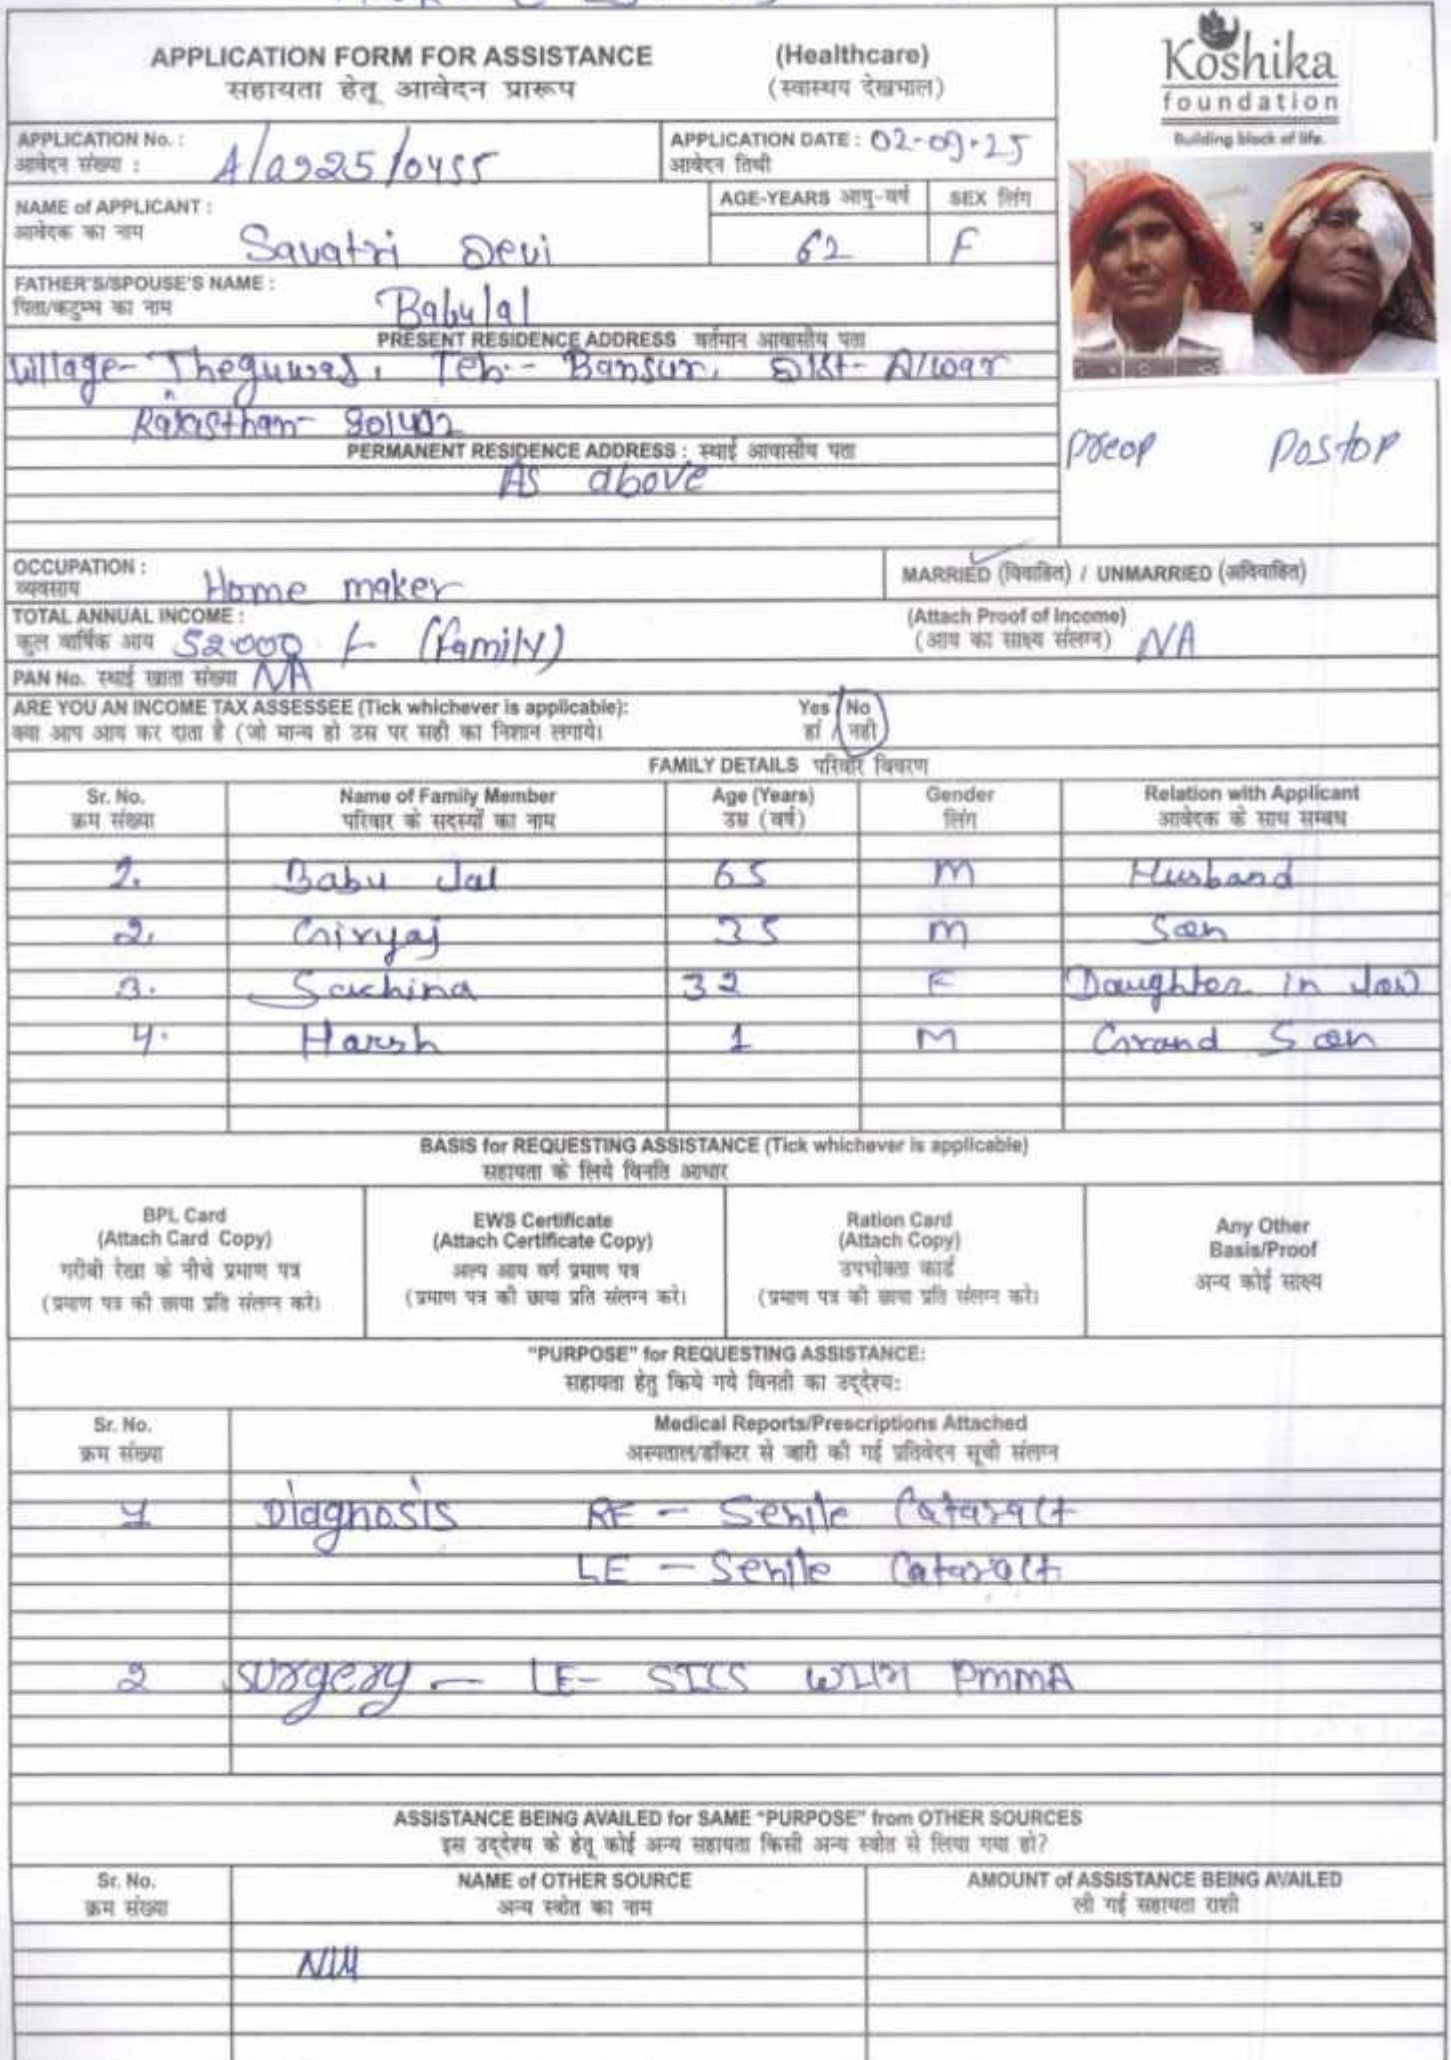 APPLICATION FORM FOR ASSISTANCE (Healthcare)
सहायता हेतू आवेदन प्रारूप (स्वास्थय देखभाल)
Koshika
foundation
Building block of life.
APPLICATION No. : A/0925/0455
आवेदन संख्या :
APPLICATION DATE : 02-09-25
आवेदन तिथी
NAME of APPLICANT : Savatri Devi
आवेदक का नाम
AGE-YEARS आयु-वर्ष 62
SEX लिंग F
FATHER'S/SPOUSE'S NAME : Babulal
पिता/कटुम्ब का नाम
PRESENT RESIDENCE ADDRESS वर्तमान आवासीय पता
Village- Theguwas, Teh.- Bansur, Dist- Alwar
Rajasthan-
PERMANENT RESIDENCE ADDRESS : स्थाई आवासीय पता
As above
Preop Postop
OCCUPATION : Home maker
व्यवसाय
MARRIED (विवाहित) / UNMARRIED (अविवाहित)
TOTAL ANNUAL INCOME :
कुल वार्षिक आय 52000 /- (Family)
(Attach Proof of Income)
(आय का साक्ष्य संलग्न) NA
PAN No. स्थाई खाता संख्या NA
ARE YOU AN INCOME TAX ASSESSEE (Tick whichever is applicable): Yes / No
क्या आप आय कर दाता है (जो मान्य हो उस पर सही का निशान लगाये। हां / नही
FAMILY DETAILS परिवार विवरण
Sr. No. Name of Family Member Age (Years) Gender Relation with Applicant
क्रम संख्या परिवार के सदस्यों का नाम उम्र (वर्ष) लिंग आवेदक के साथ सम्बध
1. Babu Lal 65 M Husband
2. Giryaj 35 M Son
3. Sachina 32 F Daughter in law
4. Harsh 1 M Grand Son
BASIS for REQUESTING ASSISTANCE (Tick whichever is applicable)
सहायता के लिये विनति आधार
BPL Card
(Attach Card Copy)
गरीबी रेखा के नीचे प्रमाण पत्र
(प्रमाण पत्र की छाया प्रति संलग्न करे।
EWS Certificate
(Attach Certificate Copy)
अल्प आय वर्ग प्रमाण पत्र
(प्रमाण पत्र की छाया प्रति संलग्न करे।
Ration Card
(Attach Copy)
उपभोक्ता कार्ड
(प्रमाण पत्र की छाया प्रति संलग्न करे।
Any Other
Basis/Proof
अन्य कोई साक्ष्य
"PURPOSE" for REQUESTING ASSISTANCE:
सहायता हेतु किये गये विनती का उद्देश्य:
Sr. No. Medical Reports/Prescriptions Attached
क्रम संख्या अस्पताल/डॉक्टर से जारी की गई प्रतिवेदन सूची संलग्न
1 Diagnosis RE - Senile Cataract
LE - Senile Cataract
2 Surgery - LE- SICS with PMMA
ASSISTANCE BEING AVAILED for SAME "PURPOSE" from OTHER SOURCES
इस उद्देश्य के हेतू कोई अन्य सहायता किसी अन्य स्त्रोत से लिया गया हो?
Sr. No. NAME of OTHER SOURCE AMOUNT of ASSISTANCE BEING AVAILED
क्रम संख्या अन्य स्त्रोत का नाम ली गई सहायता राशी
Nill